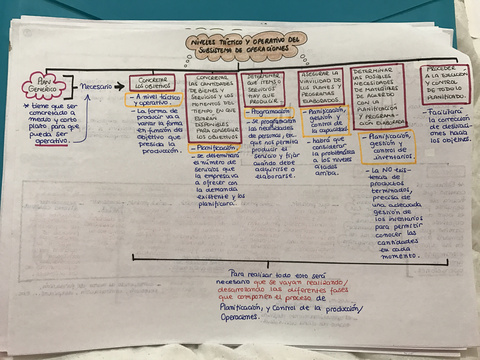 NIVELES TÁCTICO Y OPERATIVO DEL
SUBSISTEMA DE OPERACIONES
PLAN
GENÉRICO
Necesario
* tiene que ser
concretado a
medio y corto
plazo para que
pueda ser
operativo.
CONCRETAR
LOS OBJETIVOS
- A nivel táctico
y operativo.
- La forma de
producir va a
variar la forma
en función del
objetivo que
presida la
producción.
CONCRETAR
LAS CANTIDADES
DE BIENES Y
SERVICIOS Y LOS
MOMENTOS DEL
TIEMPO EN QUE
ESTARÁN
DISPONIBLES
PARA CONSEGUIR
LOS OBJETIVOS
- Planificación
- se determinará
el número de
servicios que
la empresa va
a ofrecer con
la demanda
existente y los
planificará.
DETERMINAR
QUE ITEMS O
SERVICIOS
HAY QUE
PRODUCIR
- Programación
- Se programarán
las necesidades
de personas, en
qué nos permita
producir el servi-
cio y fijar
cuándo debe
adquirirse o
elaborarse.
ASEGURAR LA
VIABILIDAD DE
LOS PLANES Y
PROGRAMAS
ELABORADOS
- Planificación,
gestión y
control de
la capacidad.
- habrá que
considerar
la problemática
a los niveles
citados
arriba.
DETERMINAR
LAS POSIBLES
NECESIDADES
DE MATERIALES
DE ACUERDO
CON LA
PLANIFICACIÓN
Y PROGRAMA-
CIÓN ELABORADA
- Planificación,
gestión y
control de
inventarios.
- La NO exis-
tencia de
productos
terminados,
precisa de
una adecuada
gestión de
los inventarios
para permitir
conocer las
cantidades
en cada
momento.
PROCEDER
A LA EJECUCIÓN
Y CONTROL
DE TODO
LO PLANIFICADO.
- Facilitará
la corrección
de desvia-
ciones
hacia los
objetivos.
Para realizar todo esto será
necesario que se vayan realizando/
desarrollando las diferentes fases
que componen el proceso de
Planificación, y Control de la producción/
Operaciones.